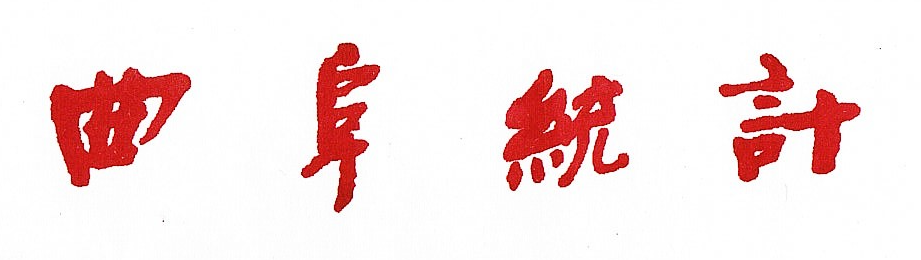 曲阜統計